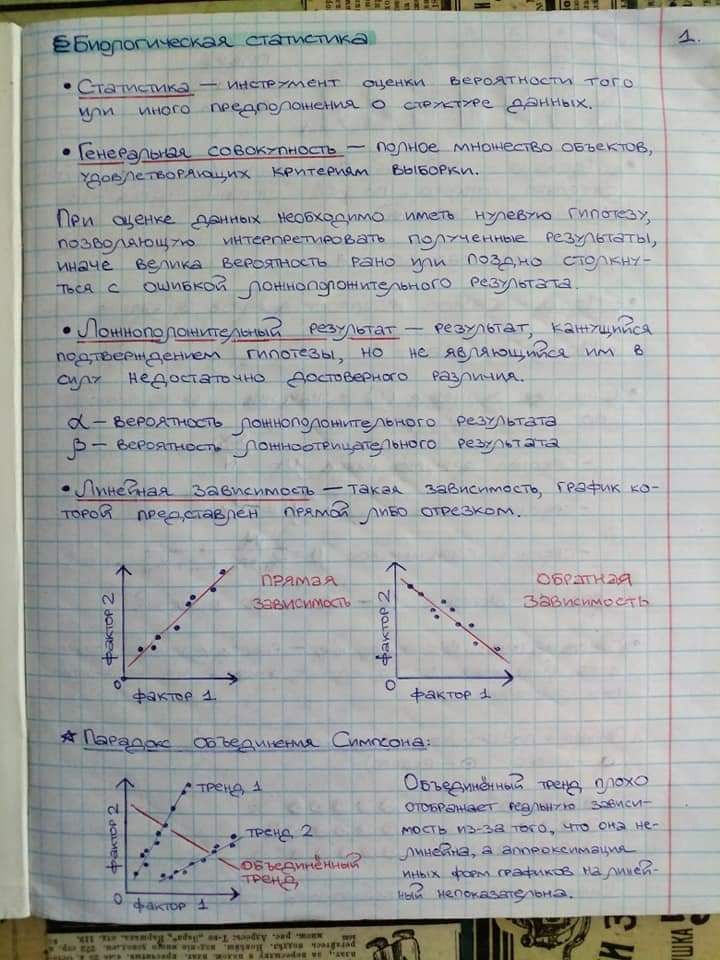 Биологическая статистика
1.
• Статистика — инструмент оценки вероятности того
или иного предположения о структуре данных.
• Генеральная совокупность — полное множество объектов,
удовлетворяющих критериям выборки.
При оценке данных необходимо иметь нулевую гипотезу,
позволяющую интерпретировать полученные результаты,
иначе велика вероятность рано или поздно столкну-
ться с ошибкой ложноположительного результата.
• Ложноположительный результат — результат, кажущийся
подтверждением гипотезы, но не являющийся им в
силу недостаточно достоверного различия.
α — вероятность ложноположительного результата
β — вероятность ложноотрицательного результата
• Линейная зависимость — такая зависимость, график ко-
торой представлен прямой либо отрезком.
фактор 2
0
фактор 1
прямая
зависимость
фактор 2
0
фактор 1
обратная
зависимость
☆ Парадокс объединения Симпсона:
фактор 2
0
фактор 1
тренд 1
тренд 2
объединённый
тренд
Объединённый тренд плохо
отображает реальную зависи-
мость из-за того, что она не-
линейна, а аппроксимация
иных форм графиков на линей-
ный непоказательна.